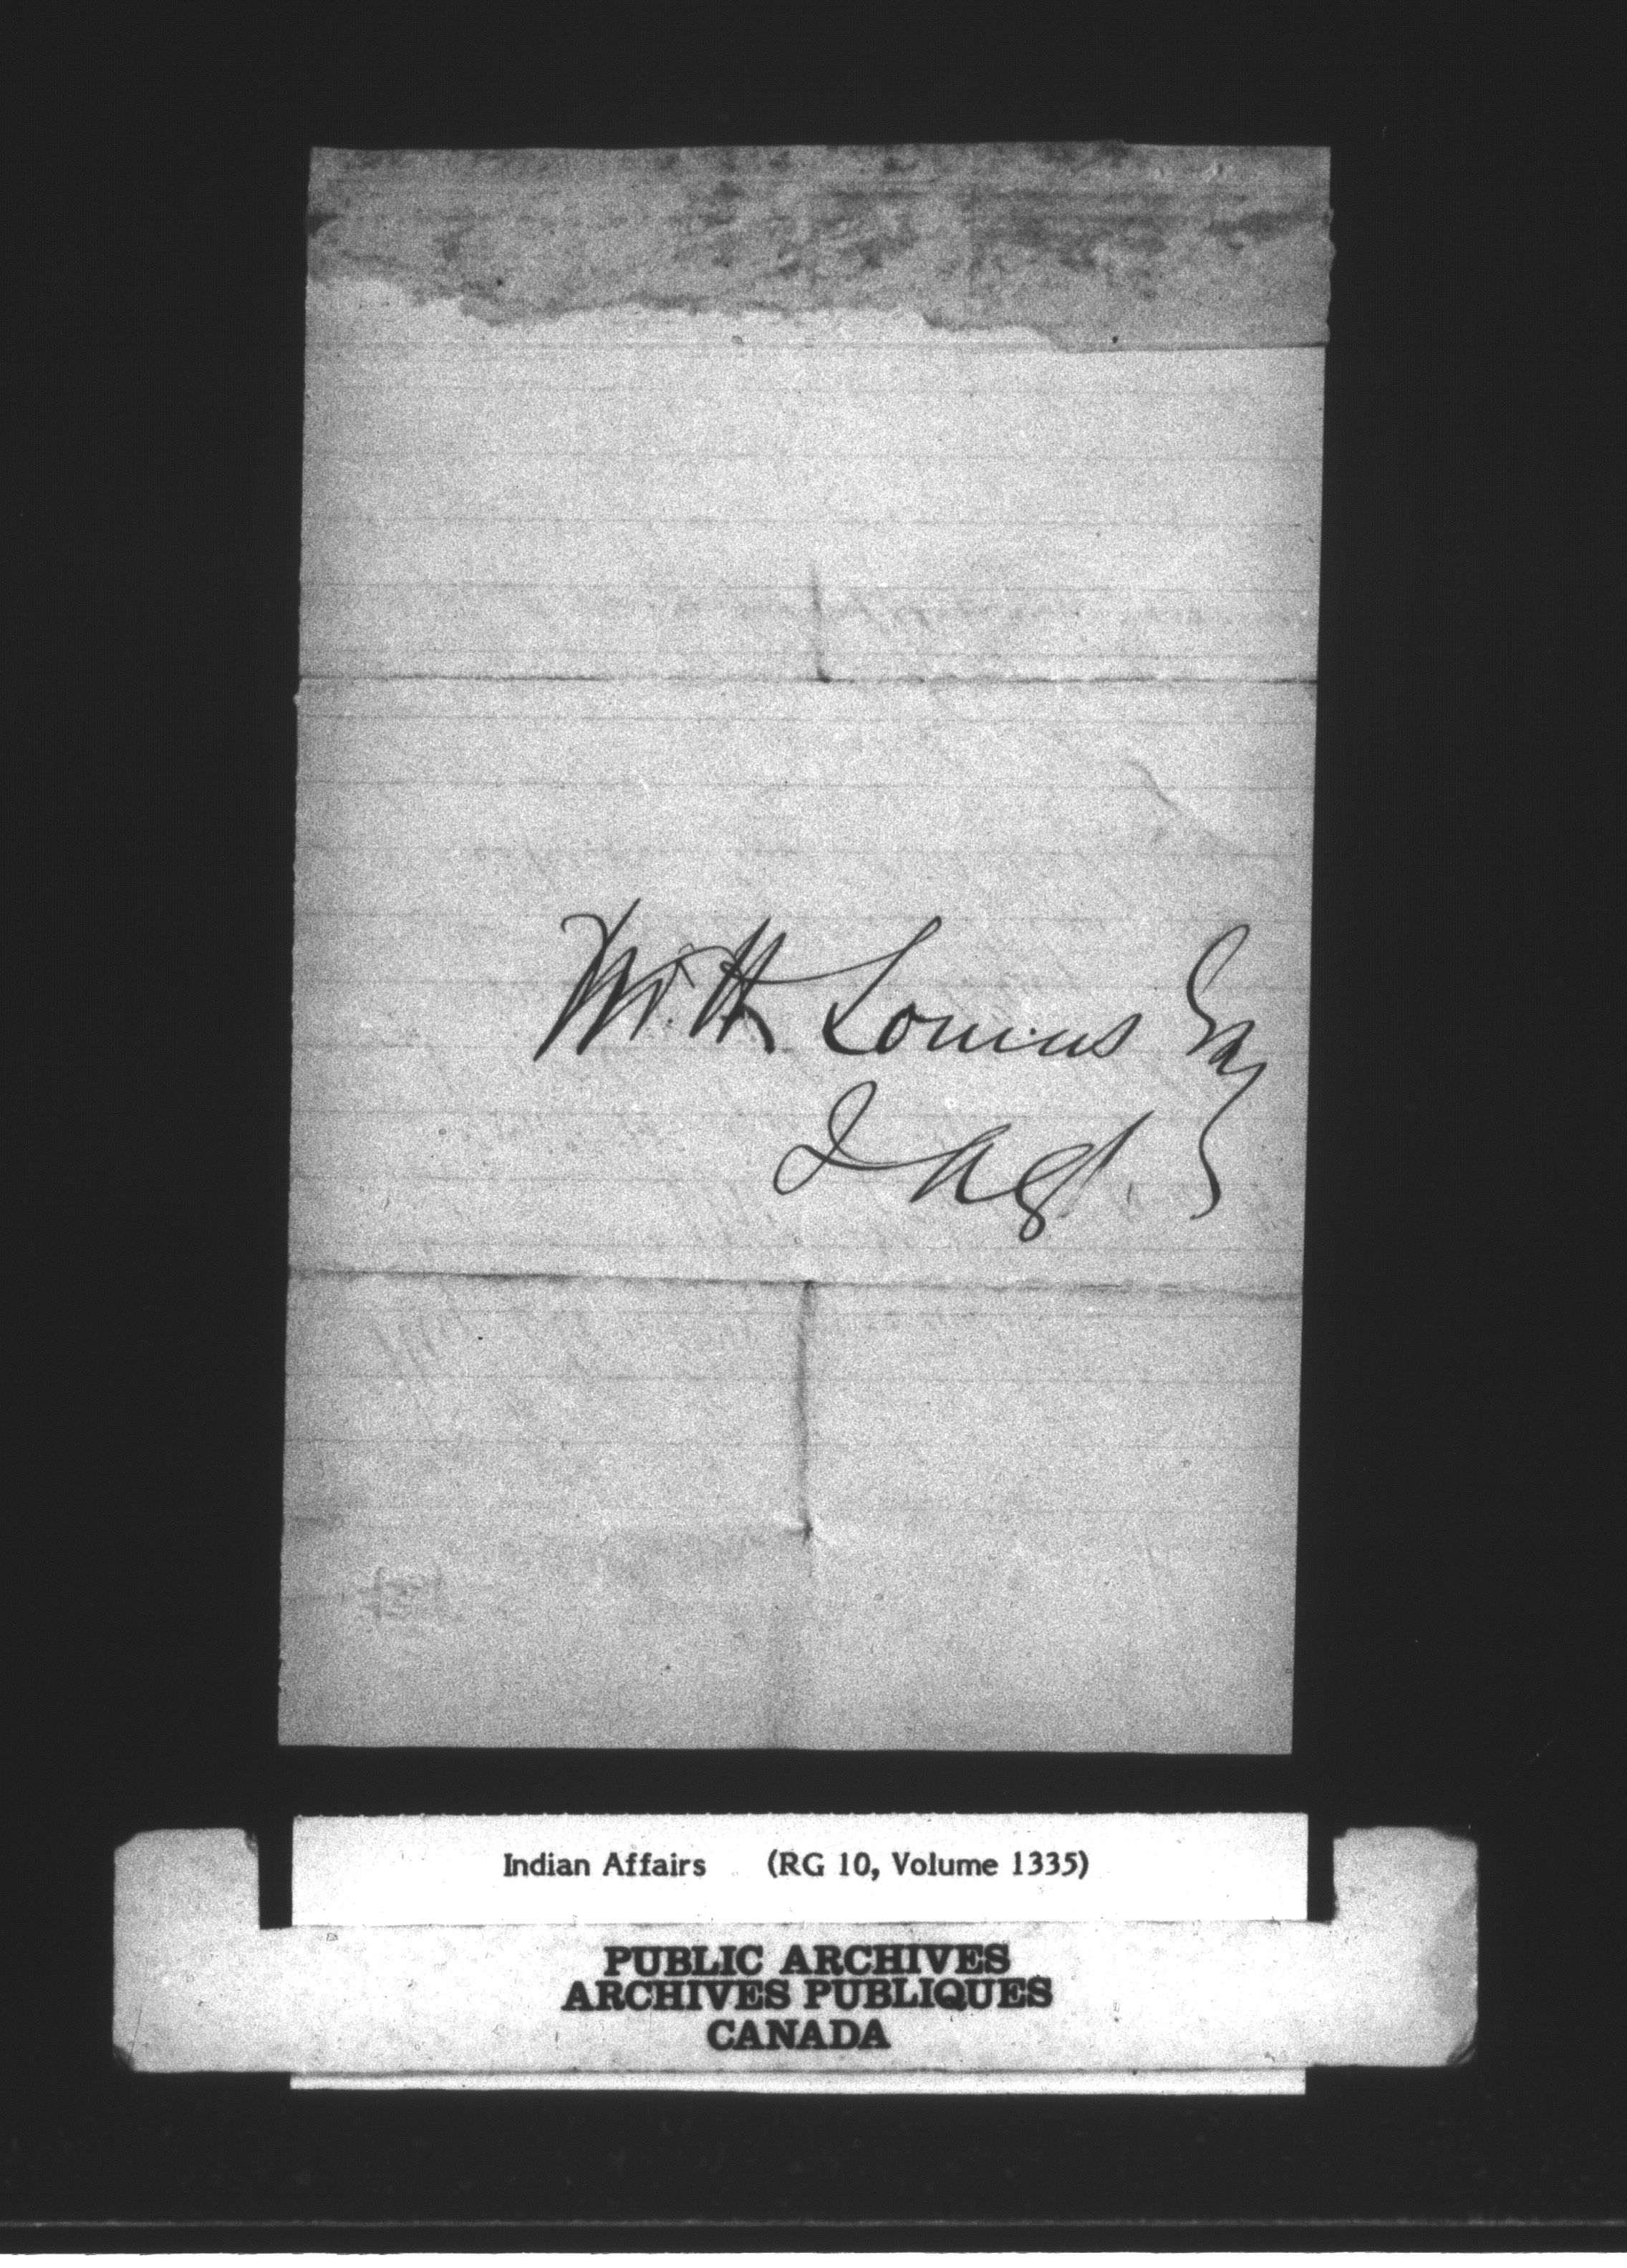 W. H. Lomas Esq
I Agt.
Indian Affairs (RG 10, Volume 1335)
PUBLIC ARCHIVES
ARCHIVES PUBLIQUES
CANADA